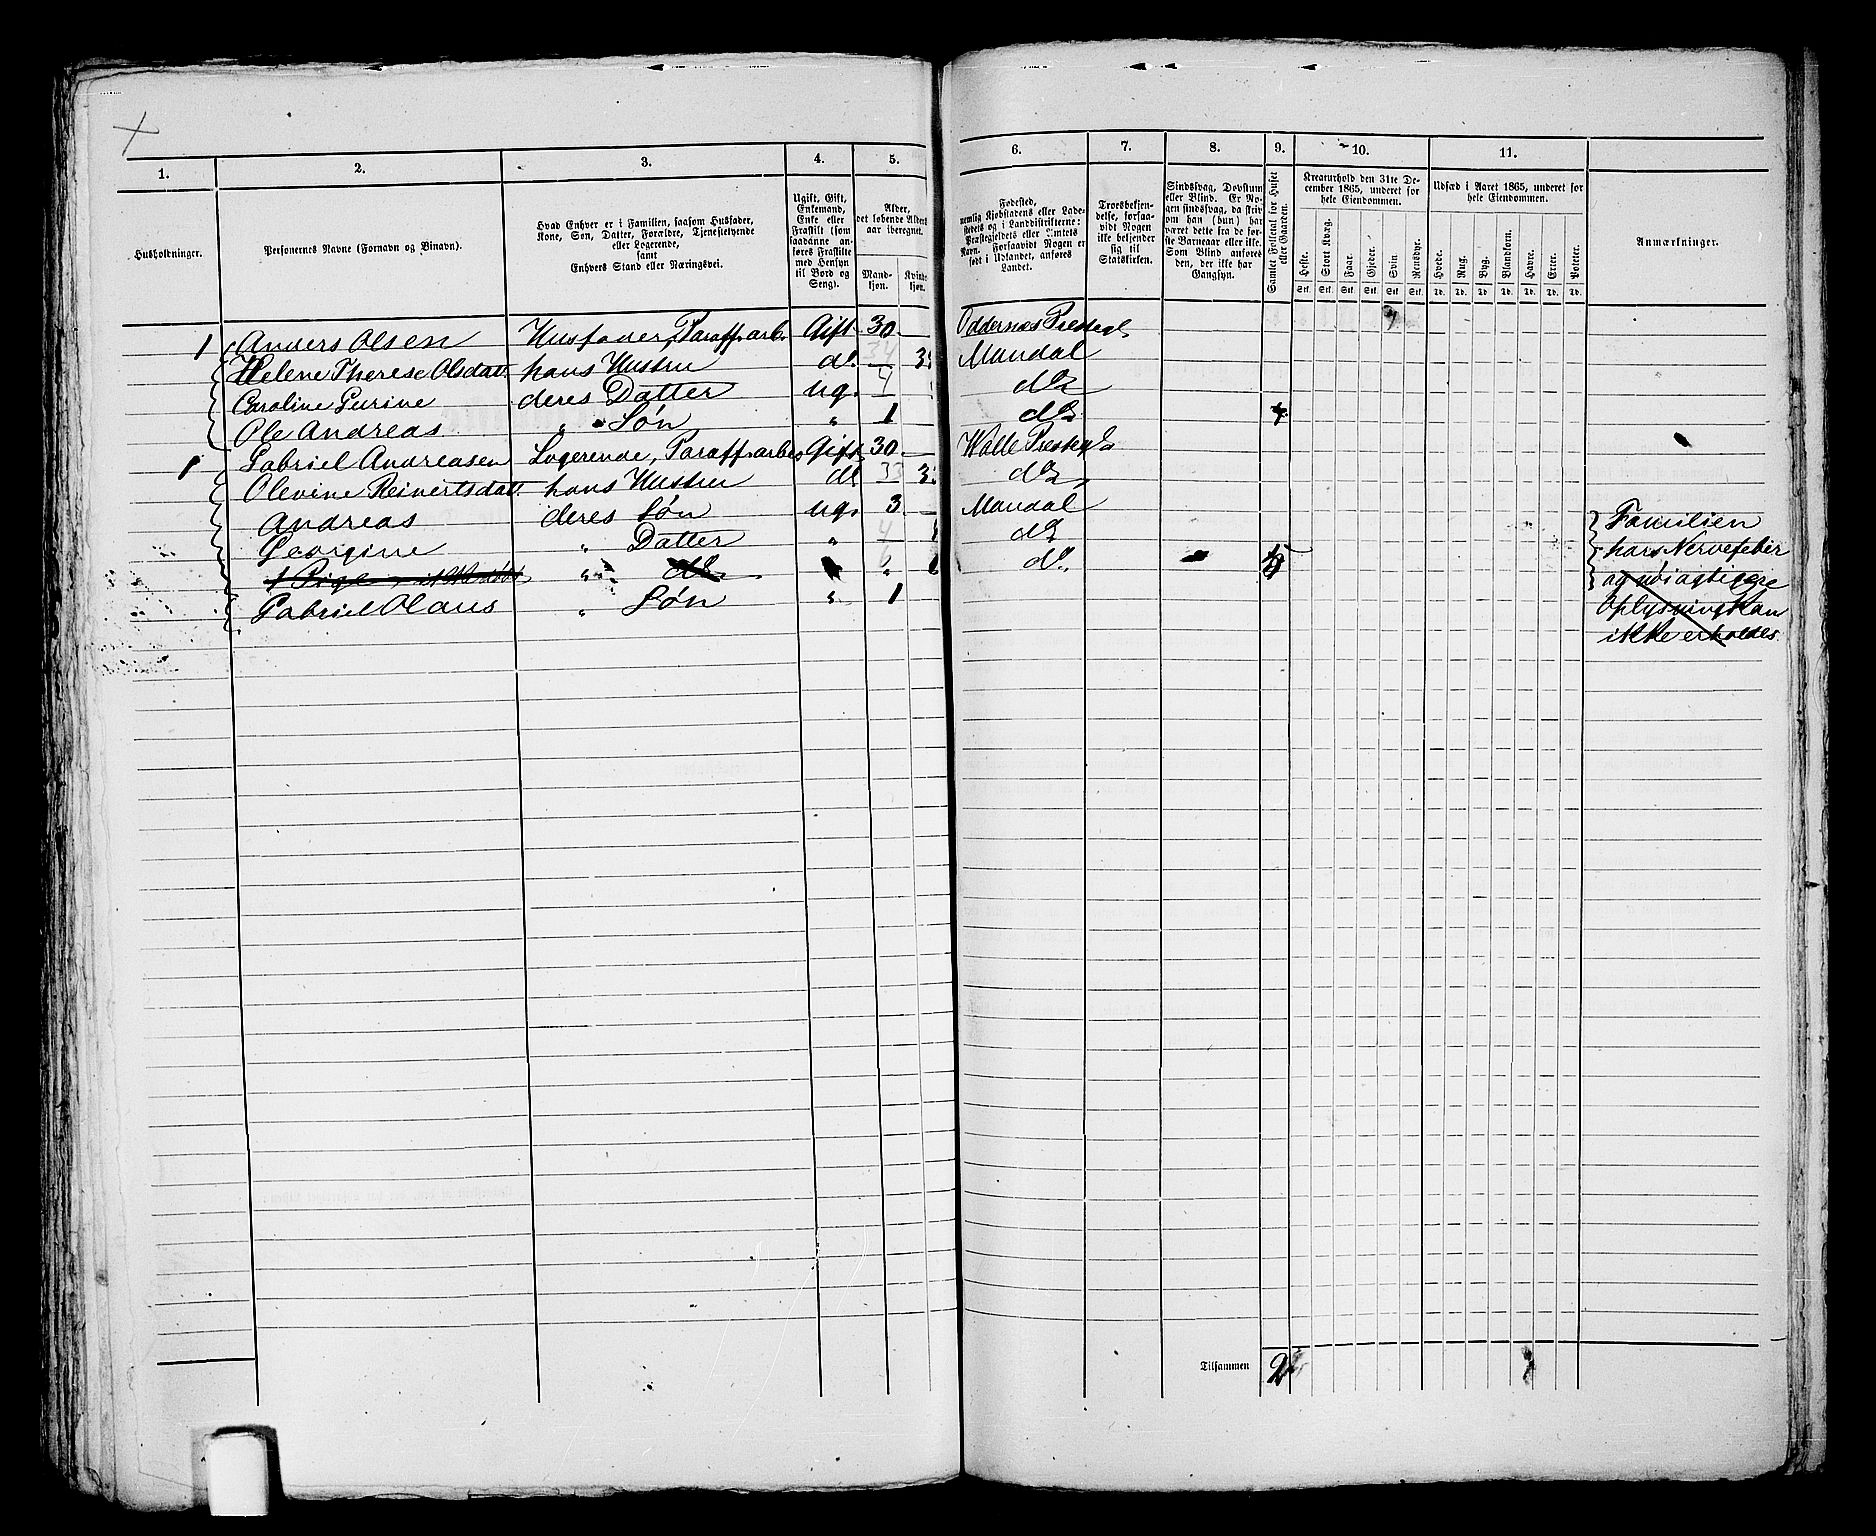 1. 2. 3. 4. 5. 6. 7. 8. 9. 10. 11.
Husholdninger.
Personernes Navne (Fornavn og Binavn).
Hvad Enhver er i Familien, saasom Husfader,
Kone, Søn, Datter, Forældre, Tjenestetyende
eller Logerende,
samt
Enhvers Stand eller Næringsvei.
Ugift, Gift,
Enkemand,
Enke eller
Fraskilt (som
saadanne an-
føres Fraskilte
med Hensyn
til Bord og
Seng).
Alder,
det løbende Alders-
aar iberegnet.
Mand-
kjøn.
Kvinde-
kjøn.
Fødested,
nemlig Kjøbstadens eller Lade-
stedets og i Landdistrikterne:
Præstegjeldets eller Amtets
Navn. Forsaavidt Nogen er
født i Udlandet, anføres
Landet.
Troesbekjen-
delse, forsaa-
vidt Nogen
ikke bekjender
sig til
Statskirken.
Sindssvag, Døvstum
eller Blind. Er No-
gen sindssvag, da skriv
om han (hun) har
været dette fra de før-
ste Barneaar eller ikke.
Som Blind anføres
den, der ikke har
Gangsyn.
Samlet Folketal for Huset
eller Gaarden.
Kreaturhold den 31te De-
cember 1865, underet for
hele Eiendommen.
Heste. Stort Kvæg. Faar. Gjeder. Svin. Rensdyr.
Stk. Stk. Stk. Stk. Stk. Stk.
Udsæd i Aaret 1865, underet for
hele Eiendommen.
Hvede. Rug. Byg. Blandkorn. Havre. Erter. Poteter.
Td. Td. Td. Td. Td. Td. Td.
Anmærkninger.
1 Anders Olsen Husfader, Paraff.arb. Gift 30 Oddernes Prestegl
Helene Therese Olsdatt. hans Hustru do 34 Mandal
Caroline Gurine deres Datter ug. 4 do
Ole Andreas " Søn " 1 do 4
1 Gabriel Andreasen Logerende, Paraff.arbei Gift 30 Halle Prestegl
Olevine Reinertsdatt. hans Hustru do 33 do
Andreas deres Søn ug. 3 Mandal
Georgine " Datter " 4 do
1 Pige ikke døbt " do " 6 do 5
Gabriel Olaus " Søn " 1
Familien
har Nervefeber
og nøiagtigere
Oplysning kan
ikke erholdes
Tilsammen 9